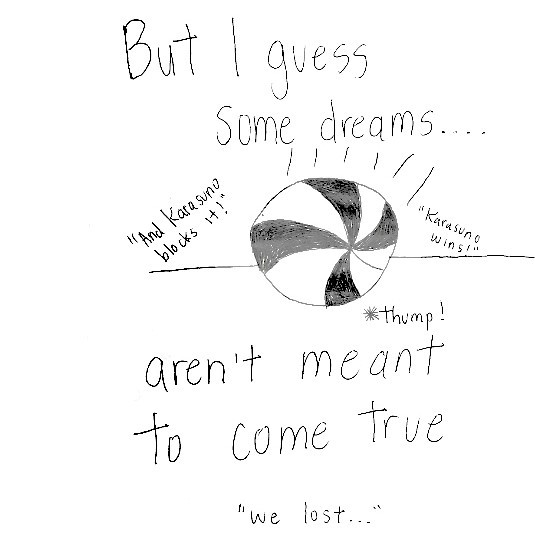 But I guess
some dreams....
"And Karasuno
blocks it!"
"Karasuno
wins!"
*thump!
aren't meant
to come true
"we lost..."